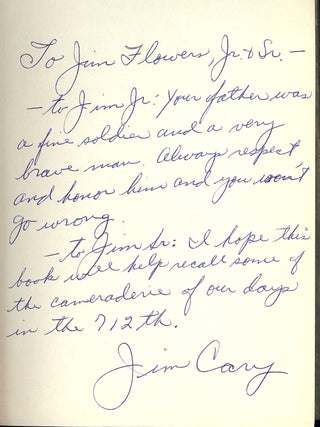 To Jim Flowers, Jr. & Sr. —
— to Jim Jr: Your father was
a fine soldier and a very
brave man. Always respect
and honor him and you won't
go wrong.
— to Jim Sr: I hope this
book will help recall some of
the cameraderie of our days
in the 712th.
Jim Cary